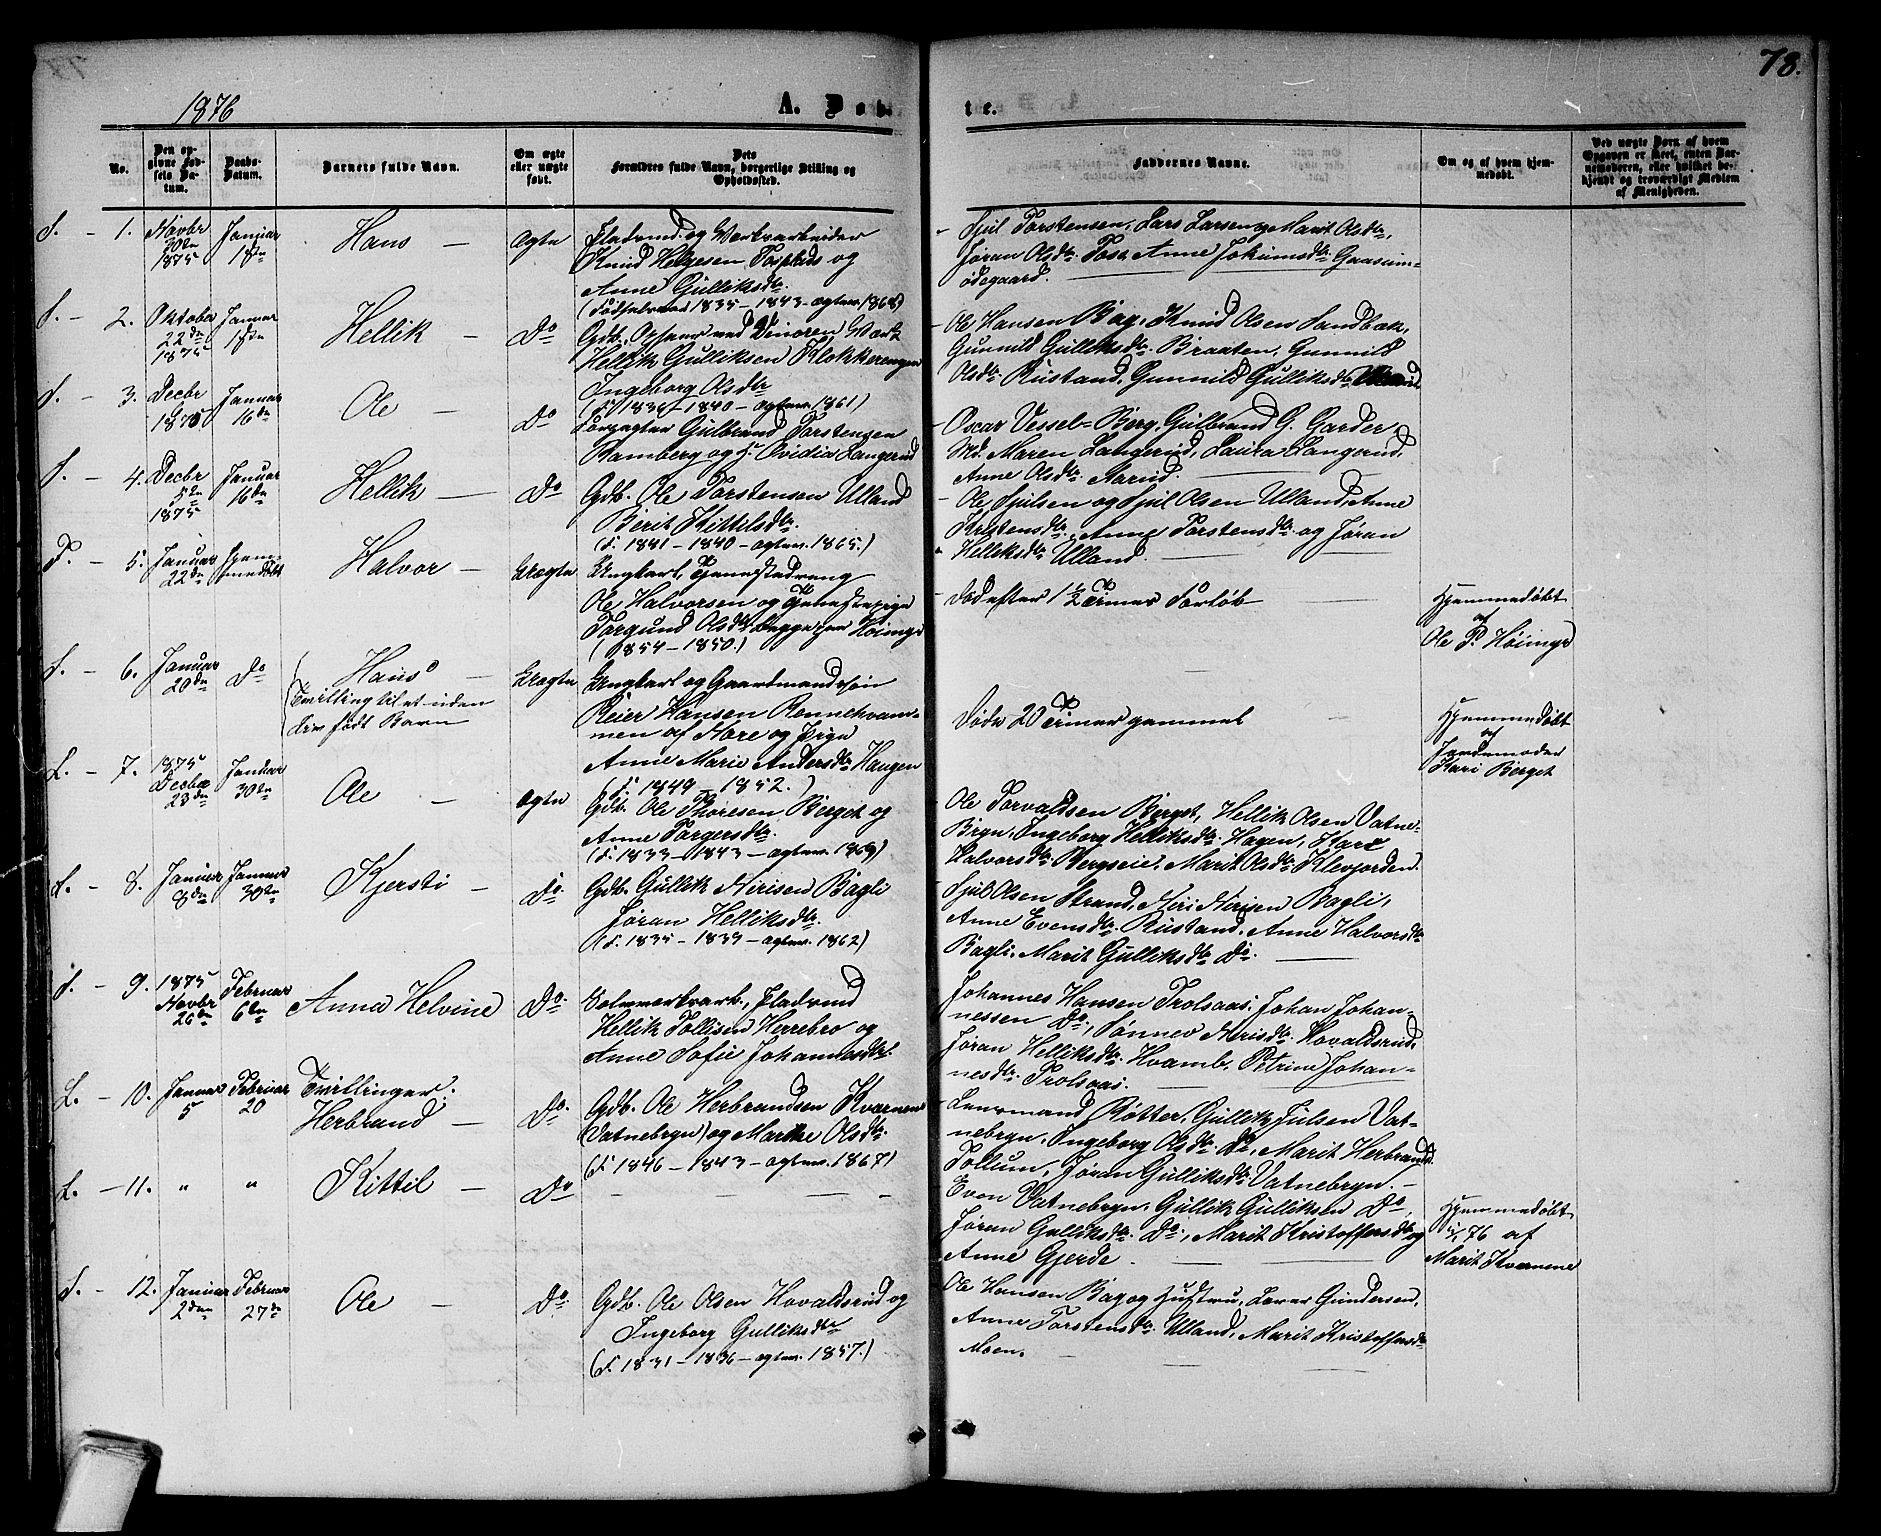 78.
1876
A. Døb
te.
No.
Den op-
givne Fød-
sels Da-
tum.
Daabs-
Datum.
Barnets fulde Navn.
Om ægte
eller uægte
født.
Dets
Forældres fulde Navn, borgerlige Stilling og
Opholdsted.
Faddernes Navne.
Om og af hvem hjem-
medøbt.
Ved uægte Børn af hvem
Opgaven er skeet, enten Bar-
nemoderen, eller hvilket be-
kjendt og troværdigt Medlem
af Menigheden.
1. Novbr 1875
Januar 1ste
Hans
Ægte
Knud Helgesen og
Anne Gulliksdtr.
(Fødselsaar 1835 - 1843 - ægtev. 1868)
Sjul Torstensen, Lars Larsen og Marit Olsdtr,
Jøran Olsdtr. Anne Jokumsdtr Gaasum-
ødegaard.
2. Oktober 22de 1875
Januar 1ste
Hellik
Do
Hellik Gulliksen Klokkerengen
Ingeborg Olsdtr
1840 - ægtev. 1861)
Ole Hansen Bag, Knud Olsen Sandbæk,
Gunnild Gulliksdtr. Braaten, Gunnild
Olsdtr. Rustand, Gunnild Gulliksdtr
3. Decbr 1875
Januar 16de
Ole
Do
Forpagter Gulbrand Torstensen
Ramberg og Ovidia Langerud
Oscar Vessel-Berg, Gulbrand G. Garder
Md. Maren Langerud, Laura Langerud,
Anne Olsdtr. Aarud.
4. Decbr 5te 1875
Januar 16de
Hellik
Do
Gdb. Ole Torstensen Ulland
Berit Kittilsdtr.
(F. 1841 - 1840 - ægtev. 1865.)
Ole Sjulsen og Sjul Olsen Ulland, Anne
Kristensdtr., Anne Torstensdtr. og Jøran
Helliksdtr. Ulland.
5. Januar 22de
Hjem-
medøbt
Halvor
Uægte
Ungkarl, Tjenestedreng
Ole Halvorsen og Tjenestepige
Torgund Olsdtr. begge paa Høimyr
(1854 - 1850.)
Død efter 1½ Times Forløb
Hjemmedøbt
af
Ole P. Høimyr
6. Januar 20de
Do
Hans
Tvilling til et uden
Liv født Barn
Uægte
Ungkarl og Gaardmandssøn
Reier Hansen Rennehvam-
men af Nore og Pige
Anne Marie Andersdtr Haugen
(F. 1849 - 1852.)
Døde 20 Timer gammel
Hjemmedøbt
af
Jordemoder
Kari Berget
7. 1875 Decbr 23de
Januar 30te
Ole
Ægte
Gdb. Ole Thoresen Berget og
Anne Torgersdtr.
(F. 1833 - 1843 - ægtev. 1869)
Ole Torvaldsen Berget, Hellik Olsen Vatne-
bryn, Ingeborg Helliksdtr. Hagen, Kari
Halvorsdtr. Bergseie, Marit Olsdtr. Klevjorden.
8. Januar 8de
Januar 30te
Kjersti
Do.
Gdb. Gullik Nirisen Bagli
Jøran Helliksdtr.
(F. 1835 - 1839 - ægtev. 1862)
Sjul Olsen Strand, Niri Nirisen Bagli,
Anne Evensdtr. Rustand, Anne Halvorsdtr
Bagli, Marit Gulliksdtr Do.
9. 1875 Novbr 26de
Februar 6te
Anna Helvine
Do.
Sølvverksarb., Pladsmd
Hellik Tollisen Herrebro og
Anne Sofie Johannesdtr.
Johannes Hansen Trolsaas, Johan Johan-
nessen Do, Sønnev Nirisdtr. Hovaldsrud,
Jøran Helliksdtr. Hvambr, Petrine Johan-
nesdtr. Trolsaas.
10. Januar 5
Februar 20
Tvillinger:
Herbrand
Do.
Gdb. Ole Herbrandsen Kværnene
(Vatnebryn) og Marthe Olsdtr.
(F. 1846 - 1843 - ægtev. 1867)
Lensmand Røtter, Gullik Julsen Vat-
nebryn, Ingeborg Olsdtr. Do, Marit Herbrandsd.
Tollum, Jøran Gulliksdtr. Vatnebryn.
11. " "
Kittil
Do
Even Vatnebryn, Gullik Gulliksen Do,
Jøran Gulliksdtr. Do, Marit Kristoffersdtr og
Anne Gjerde
Hjemmedøbt
5/1 76 af
Marit Kvernene
12. Januar 2den
Februar 27de
Ole
Do
Gdb. Ole Olsen Hovaldsrud og
Ingeborg Gulliksdtr
(F. 1831 - 1836 - ægtev. 1857.)
Ole Hansen Bag og Hustru, Laver Gundersen,
Anne Torstensdtr. Ulland, Marit Kristoffersdtr
Moen.